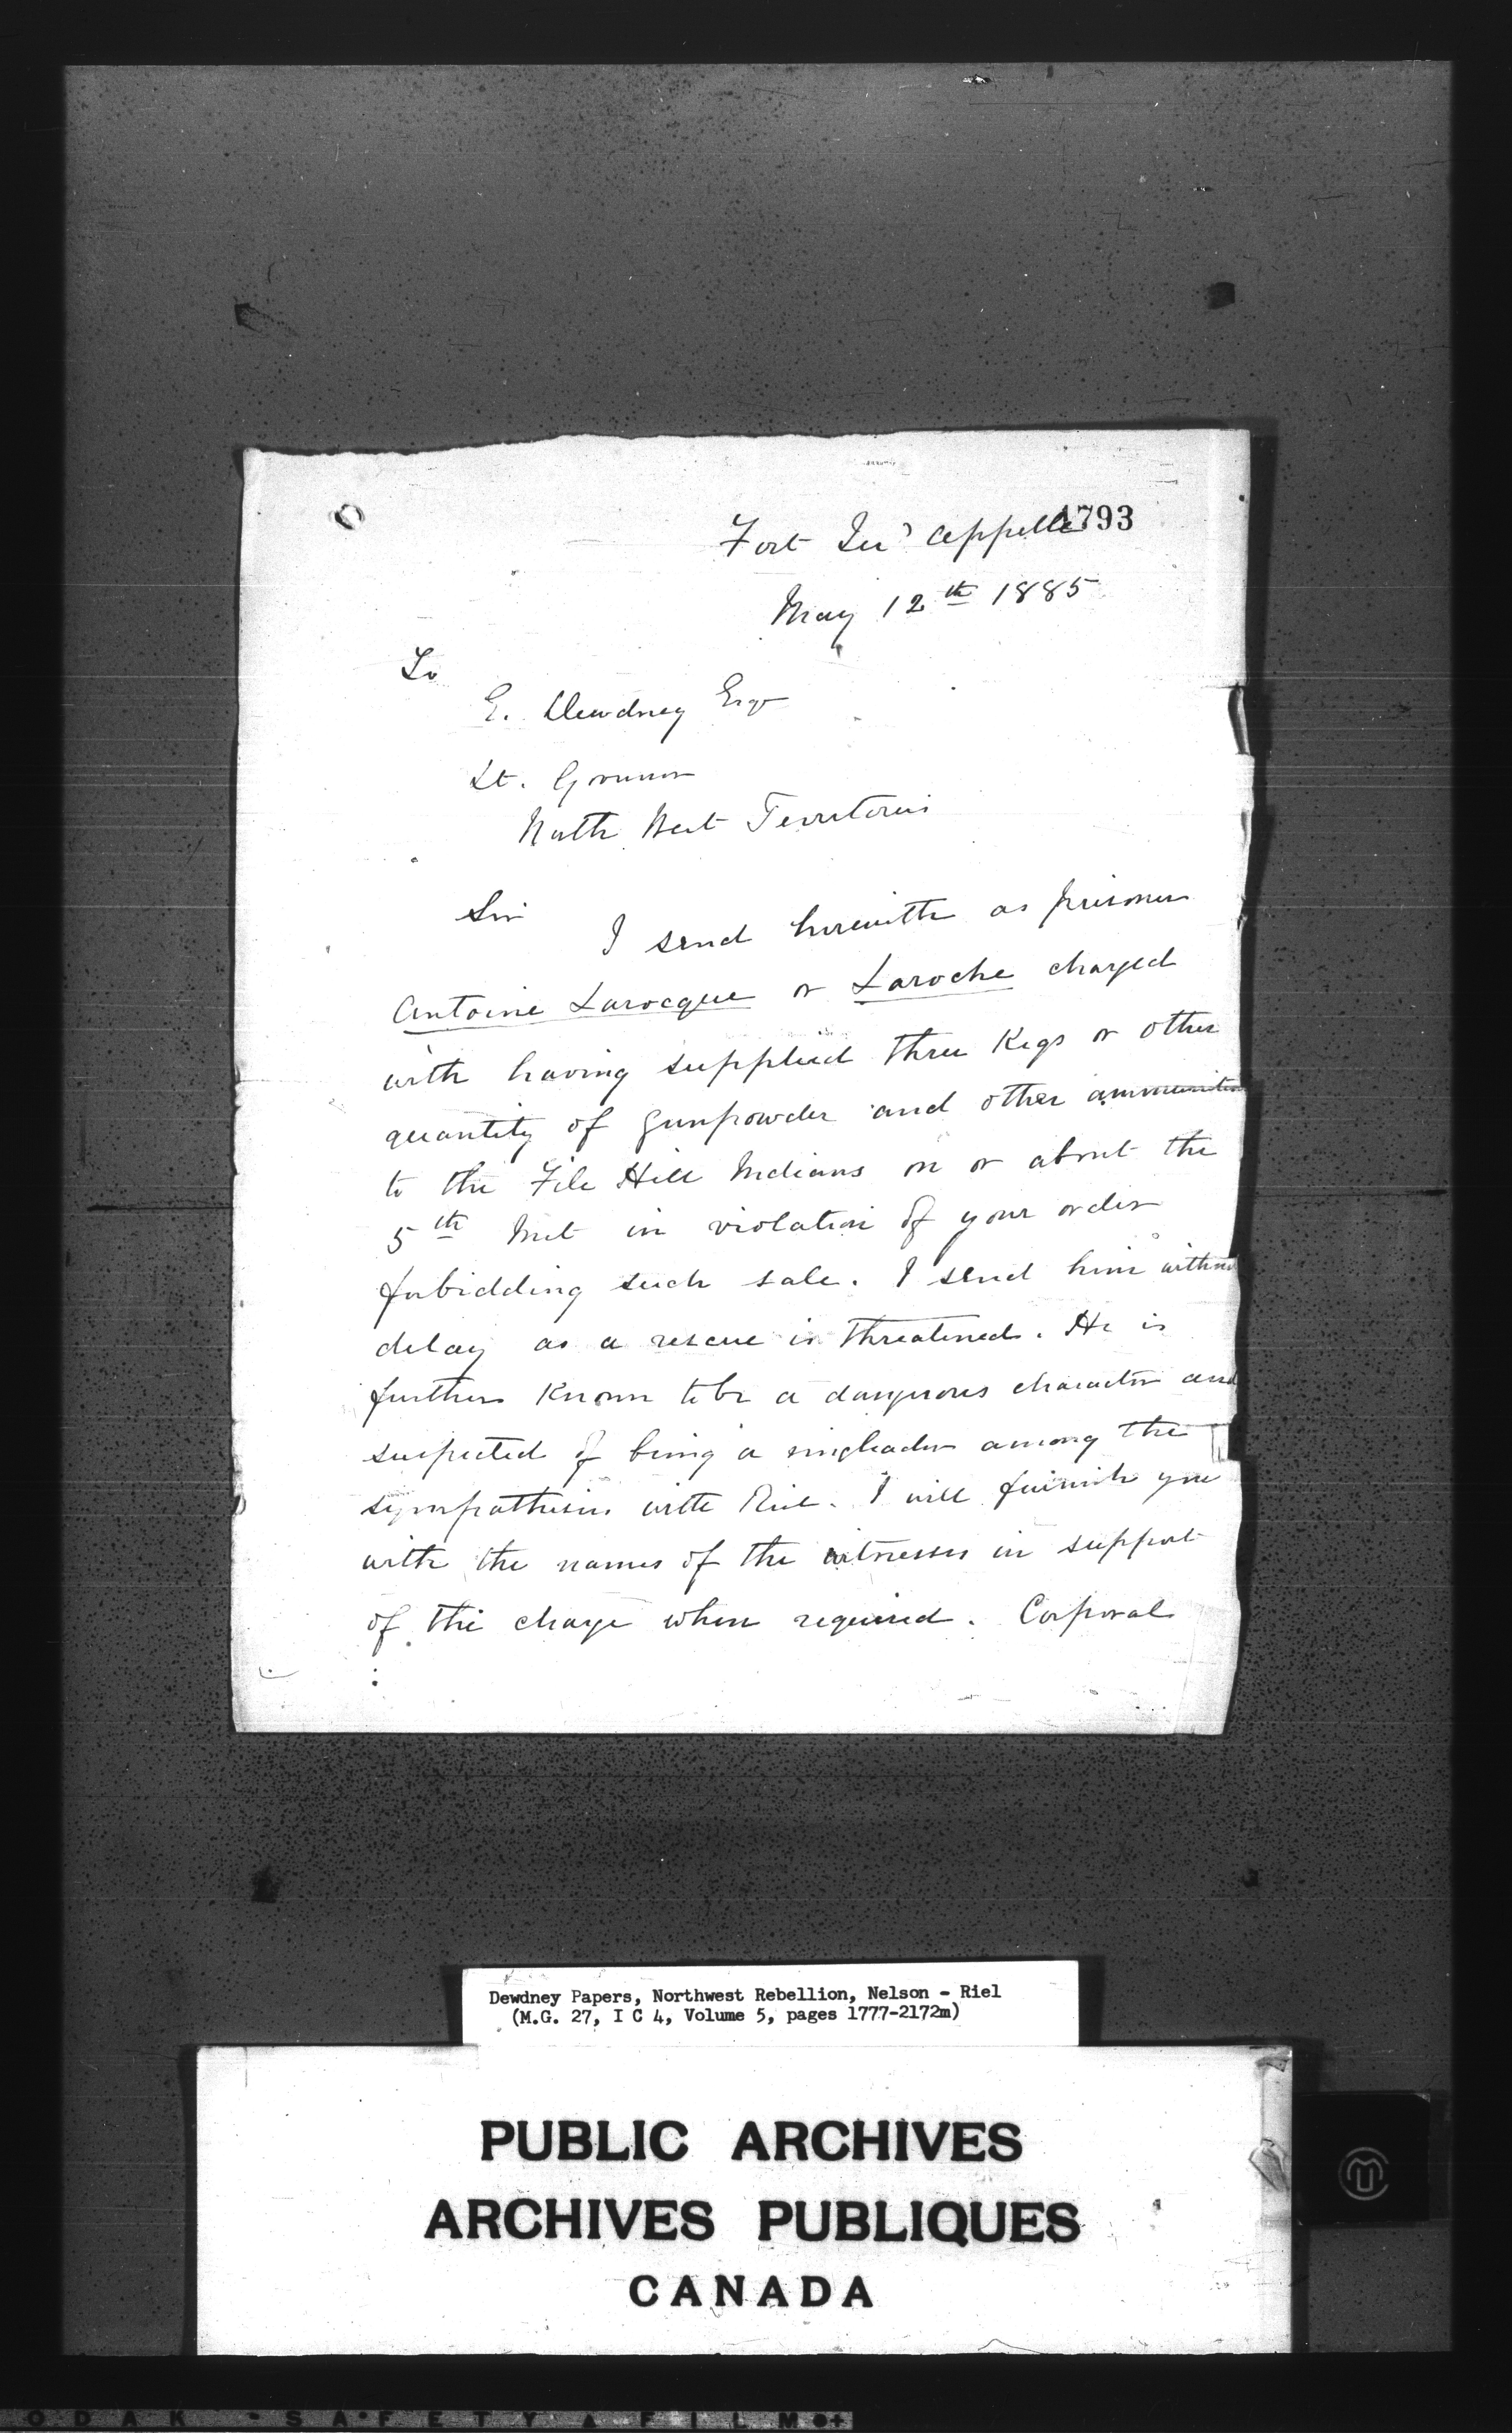 1793
Fort Qu' Appelle
May 12th 1885
To
E. Dewdney Esqr
Lt. Governor
North West Territories
Sir
I send herewith as prisoner
Antoine Larocque or Laroche charged
with having supplied three Kegs or other
quantity of gunpowder and other ammunition
to the File Hill Indians on or about the
5th Inst in violation of your order
forbidding such sale. I send him without
delay as a rescue is threatened. He is
further Known to be a dangerous character and
suspected of being a ringleader among the
sympathisers with Riel. I will furnish you
with the names of the witnesses in support
of the charge when required. Corporal
Dewdney Papers, Northwest Rebellion, Nelson - Riel
(M.G. 27, I C 4, Volume 5, pages 1777-2172m)
PUBLIC ARCHIVES
ARCHIVES PUBLIQUES
CANADA
ODAK SAFETY FILM